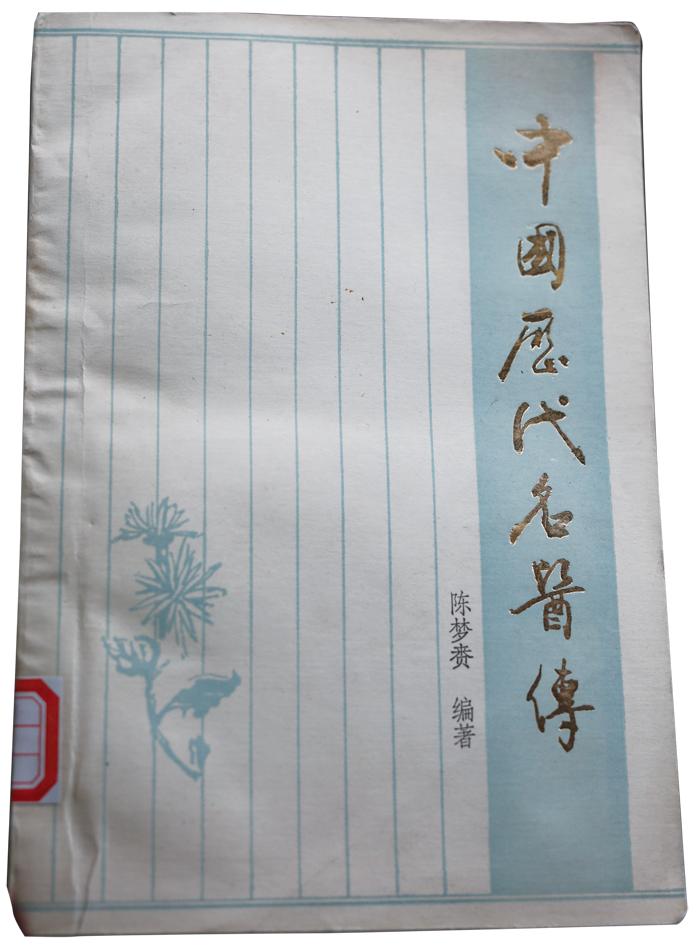 中國歷代名醫傳
陈梦赉 编著